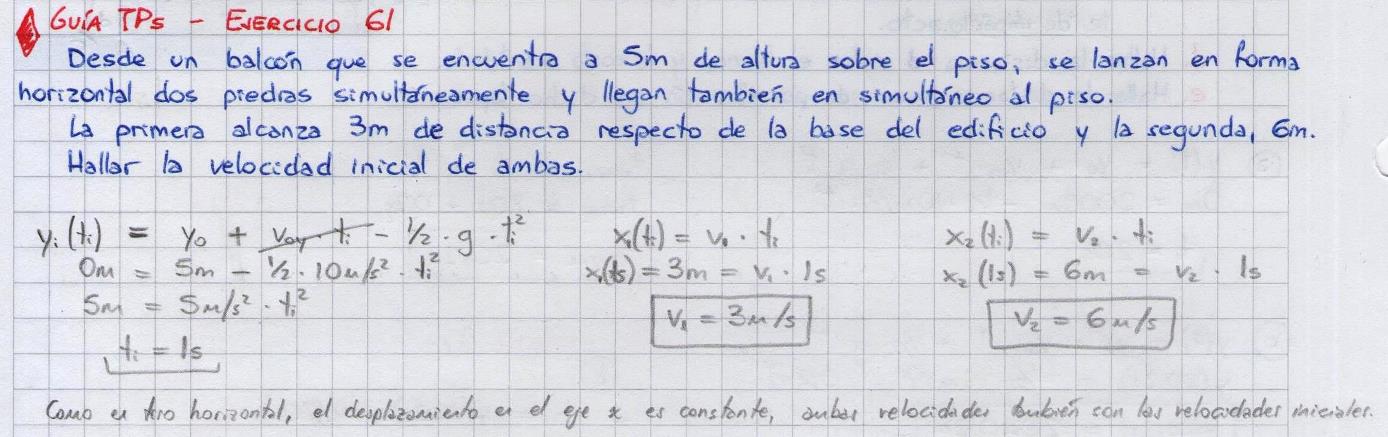 GUÍA TPs - EJERCICIO 61
Desde un balcón que se encuentra a 5m de altura sobre el piso, se lanzan en forma
horizontal dos piedras simultáneamente y llegan también en simultáneo al piso.
La primera alcanza 3m de distancia respecto de la base del edificio y la segunda, 6m.
Hallar la velocidad inicial de ambas.
yᵢ(tᵢ) = y₀ + v₀y·tᵢ - ½ · g · tᵢ²
0m = 5m - ½ · 10m/s² · tᵢ²
5m = 5m/s² · tᵢ²
tᵢ = 1s
x₁(tᵢ) = v₁ · tᵢ
x₁(1s) = 3m = v₁ · 1s
v₁ = 3m/s
x₂(tᵢ) = v₂ · tᵢ
x₂(1s) = 6m = v₂ · 1s
v₂ = 6m/s
Como en tiro horizontal, el desplazamiento en el eje x es constante, ambas velocidades también son las velocidades iniciales.